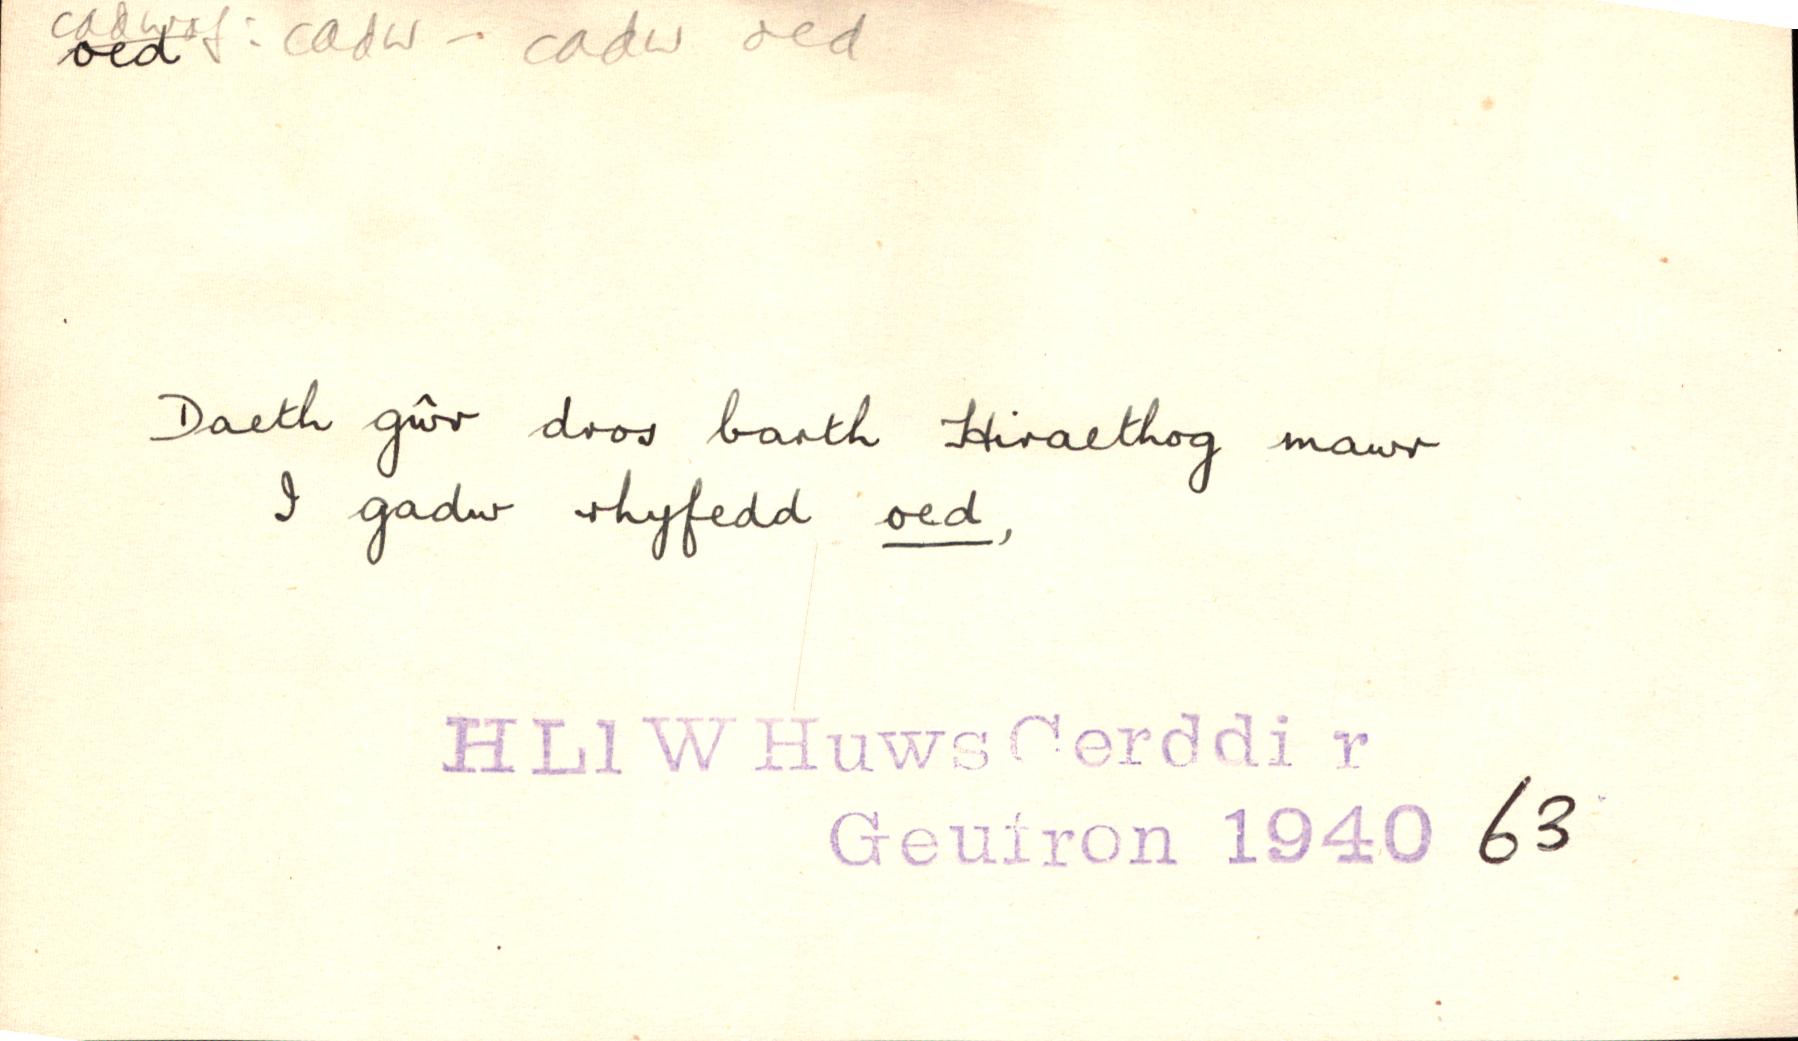 cadwaf: cadw – cadw oed
oed
Daeth gŵr dros barth Hiraethog mawr
I gadw rhyfedd oed,
HLl W Huws Cerddi r
Geufron 1940 63